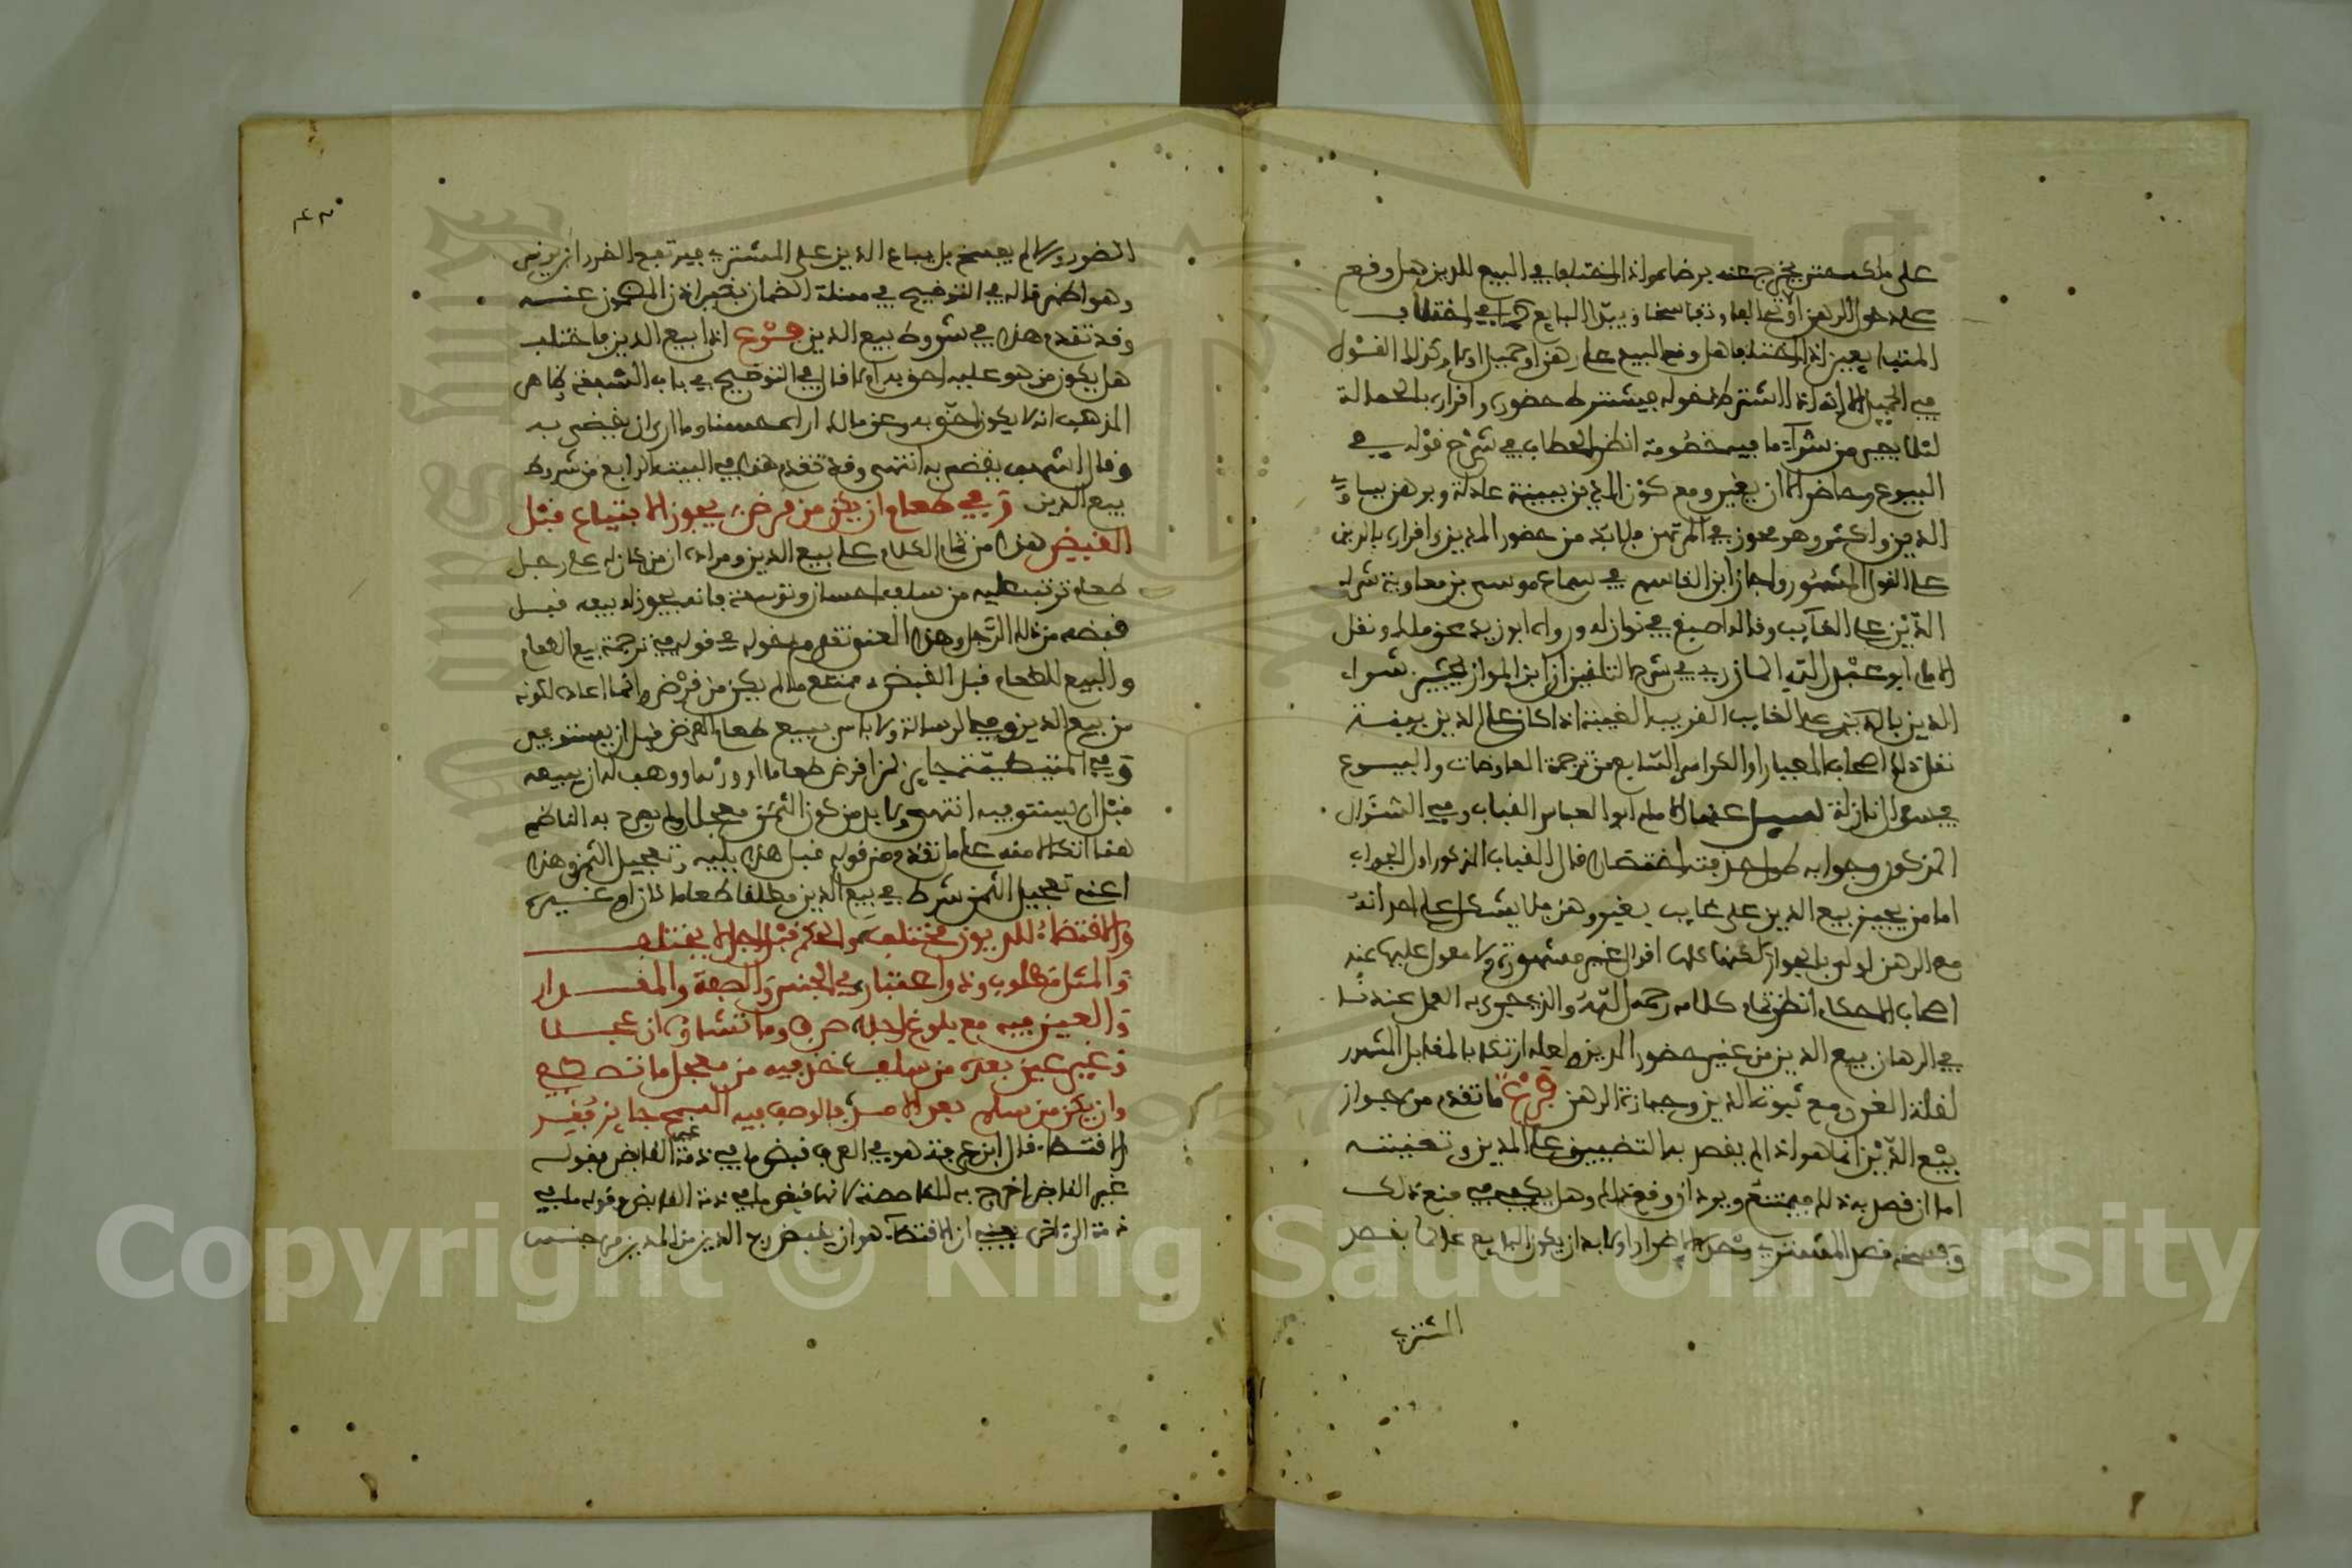 على ملك مشتر يخرج عنه برضاه واذا اختلفا في البيع للدين هل وقع
على دخول الرهن او تحالفا وتفاسخا ويبدأ البايع كما في اختلاف
المتبايعين اذا اختلفا هل وقع البيع على رهن او حميل اولا وكذلك القول
في الحميل الا انه اذا اشترط دخوله فيشترط حضوره واقراره بالحمالة
لئلا يصير من شراء ما فيه خصومة انظر الحطاب في شرح قوله في
البيوع وحاضر الا ان يقيم ومع كون الدين ببينة عادلة وبرهن يساوي
الدين واكثر وهو محوز في المرتهن فلا بد من حضور المدين واقراره بالدين
على القول المشهور واجاز ابن القاسم في سماع موسى بن معاوية شراء
الدين على الغايب وقاله اصبغ في نوازله ورواه ابو زيد عن ملك ونقل
الامام ابو عبد الله المازري في شرح التلقين ان ابن المواز شراء
الدين بالدين على الغايب القريب الغيبة اذا كان على الدين بينة
نقل ذلك صاحب المعيار اول الكراس السابع من ترجمة المعاوضات والبيوع
في سؤال نازلة سئل عنها الامام ابو العباس القباب وفي السؤال
المذكور وجوابه طول حذفته اختصارا قال القباب المذكور اول الجواب
اما من يجيز بيع الدين على غايب بغير رهن فلا يشكل على احد انه
مع الرهن اولى بالجواز لكنها كلها اقوال غير مشهورة ولا معول عليها عند
اصحاب الاحكام انظر تمام كلامه رحمه الله والذي جرى به العمل عندنا
في الرهان بيع الدين من غير حضور المدين ولعله ارتكابا لمقابل المشهور
لقلة الغرر مع ثبوت الدين وحيازة الرهن فرع ما تقدم من جواز
بيع الدين انما هو اذا لم يقصد به التضييق على المدين وتعنيته
اما ان قصد به ذلك فيمتنع ويرد ان وقع ذلك وهل يكفي في منع ذلك
وفسخه قصد المشتري وحده الاضرار اولا بد ان يكون البايع عالما بقصد
المشتري
الضرر والا لم يفسخ بل يباع الدين على المشتري فيرتفع الضرر
وهو اظهر قاله في التوضيح في مسئلة الضمان بغير اذن المضمون عنه
وقد تقدم هذا في شروط بيع الدين فرع اذا بيع الدين فاختلف
هل يكون من هو عليه احق به اولا قال في التوضيح في باب الشفعة ظاهر
المذهب انه لا يكون احق به وعن مالك اراه حسنا وما ارى ان يقضى به
وقال اشهب يقضى به انتهى وقد تقدم هذا في البيت الرابع من شروط
بيع الدين وفي طعام ان يكن من قرض يجوز الابتياع قبل
القبض هذا من تمام الكلام على بيع الدين ومراده ان من كان له على رجل
طعام ترتب عليه من سلف احسان وتوسعة فانه يجوز له بيعه قبل
قبضه من ذلك الرجل وهذا المعنى تقدم مدخوله في قوله في ترجمة بيع الطعام
والبيع للطعام قبل القبض ممتنع ما لم يكن من قرض وانما اعاده لكونه
من بيع الدين وفي الرسالة ولا باس ببيع طعام القرض قبل ان يستوفى
وفي المتيطية جايز لمن اقرض طعاما او ورثه او وهب له ان يبيعه
قبل ان يستوفيه انتهى ولا بد من كون الثمن معجلا ولم يصرح به الناظم
هنا اتكالا منه على ما تقدم من قوله قبل هذا بليه وتعجيل الثمن وهذا
اعني تعجيل الثمن شرط في بيع الدين مطلقا طعاما كان او غيره
والاقتضاء للديون مختلف والحكم قبل اجل لا يختلف
والمثل مطلوب وذو اعتبار في الجنس والصفة والمقدار
والعين فيه مع بلوغ اجله صرف وما تشاؤه ان عجلا
وغير عين بعده من سلف خذ فيه من معجل ما تصطفي
وان يكن من سلم بعد الامد فالوصف فيه السمح جايز فقد
الاقتضاء قال ابن عرفة هو في العرف قبض ما في ذمة غير القابض فقوله
غير القابض اخرج به المقاصة لانها قبض ما في ذمة القابض وقوله ما في
ذمة اخرى يعني ان الاقتضاء هو ان يقبض رب الدين من المدين من جنس